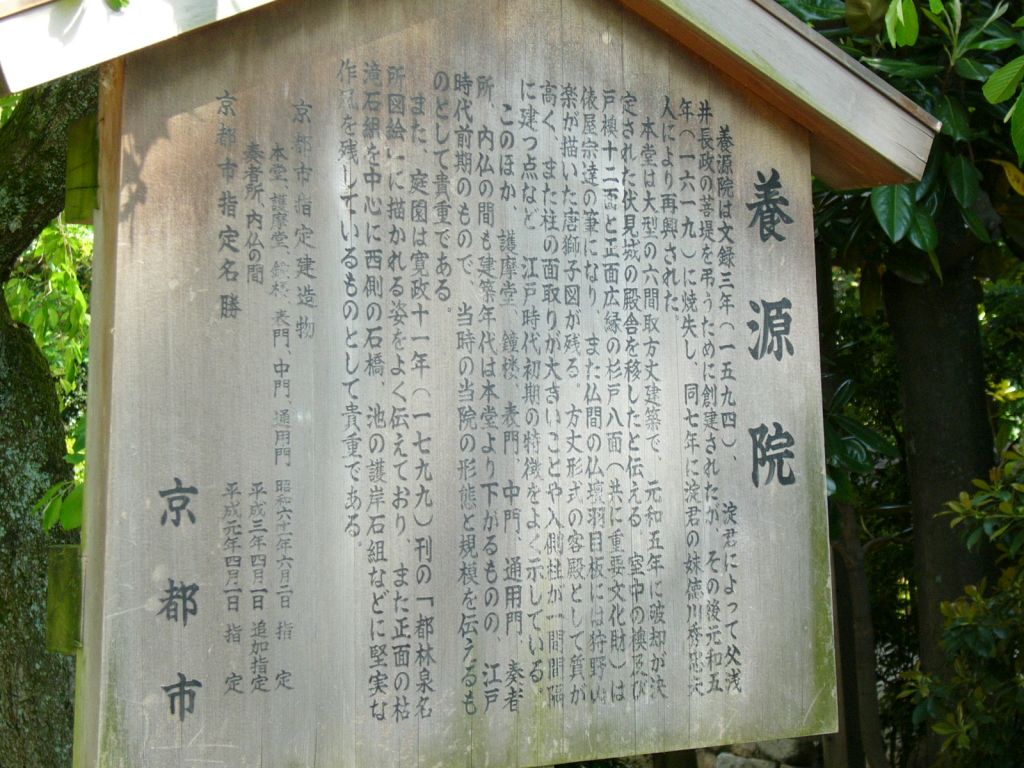 養源院
養源院は文録三年(一五九四)、淀君によって父浅
井長政の菩提を弔うために創建されたが、その後元和五
年(一六一九)に焼失し、同七年に淀君の妹徳川秀忠夫
人により再興された。
本堂は大型の六間取方丈建築で、元和五年に破却が決
定された伏見城の殿舎を移したと伝える。室中の襖及び
戸襖十二面と正面広縁の杉戸八面(共に重要文化財)は
俵屋宗達の筆になり、また仏間の仏壇羽目板には狩野山
楽が描いた唐獅子図が残る。方丈形式の客殿として質が
高く、また柱の面取りが大きいことや入側柱が一間間隔
に建つ点など、江戸時代初期の特徴をよく示している。
このほか、護摩堂、鐘楼、表門、中門、通用門、奏者
所、内仏の間も建築年代は本堂より下がるものの、江戸
時代前期のもので、当時の当院の形態と規模を伝えるも
のとして貴重である。
また、庭園は寛政十一年(一七九九)刊の「都林泉名
所図絵」に描かれる姿をよく伝えており、また正面の枯
滝石組を中心に西側の石橋、池の護岸石組などに堅実な
作風を残しているものとして貴重である。
京都市指定建造物
本堂、護摩堂、鐘楼、表門、中門、通用門 昭和六十一年六月二日 指定
奏者所、内仏の間 平成三年四月一日 追加指定
京都市指定名勝 平成元年四月一日 指定
京都市